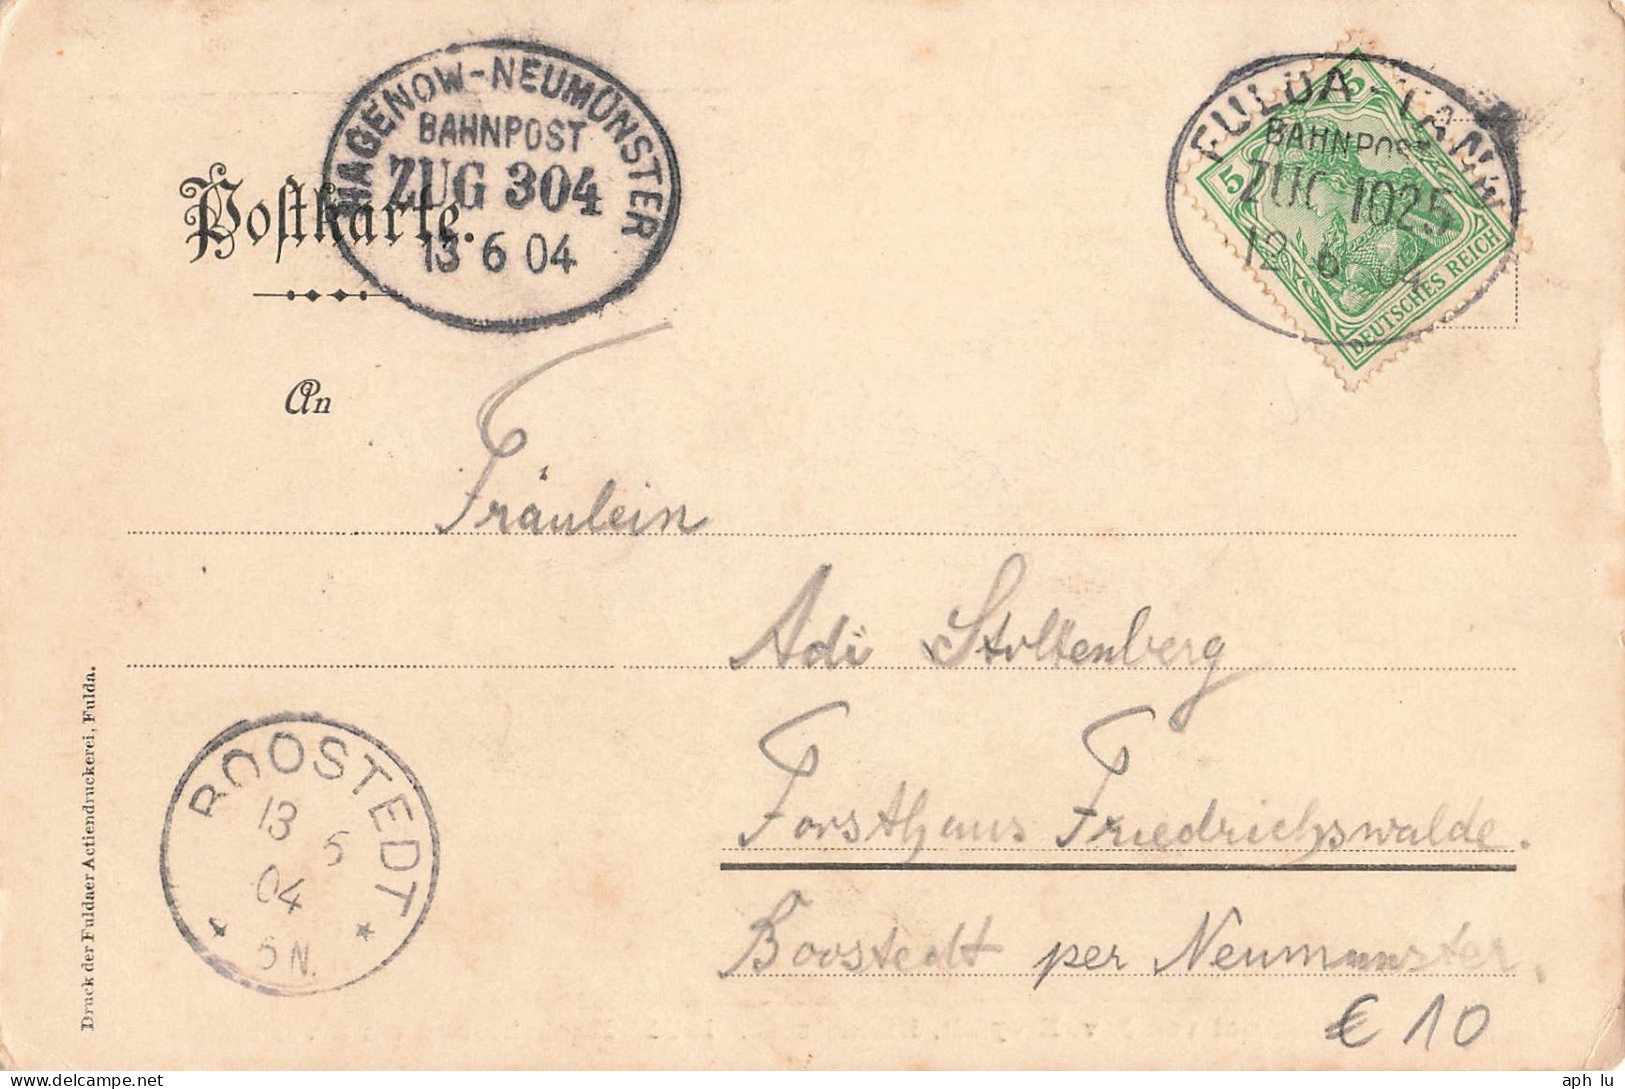 HAGENOW-NEUMÜNSTER
BAHNPOST
ZUG 304
13 6 04
FULDA-TANN
BAHNPOST
ZUG 1025
12 6 04
5 5
DEUTSCHES REICH
Postkarte.
An
Fräulein
Adi Stoltenberg
Forsthaus Friedrichswalde.
Boostedt per Neumünster.
BOOSTEDT
13 6
04
5 N.
Druck der Fuldaer Actiendruckerei, Fulda.
€ 10
aph lu